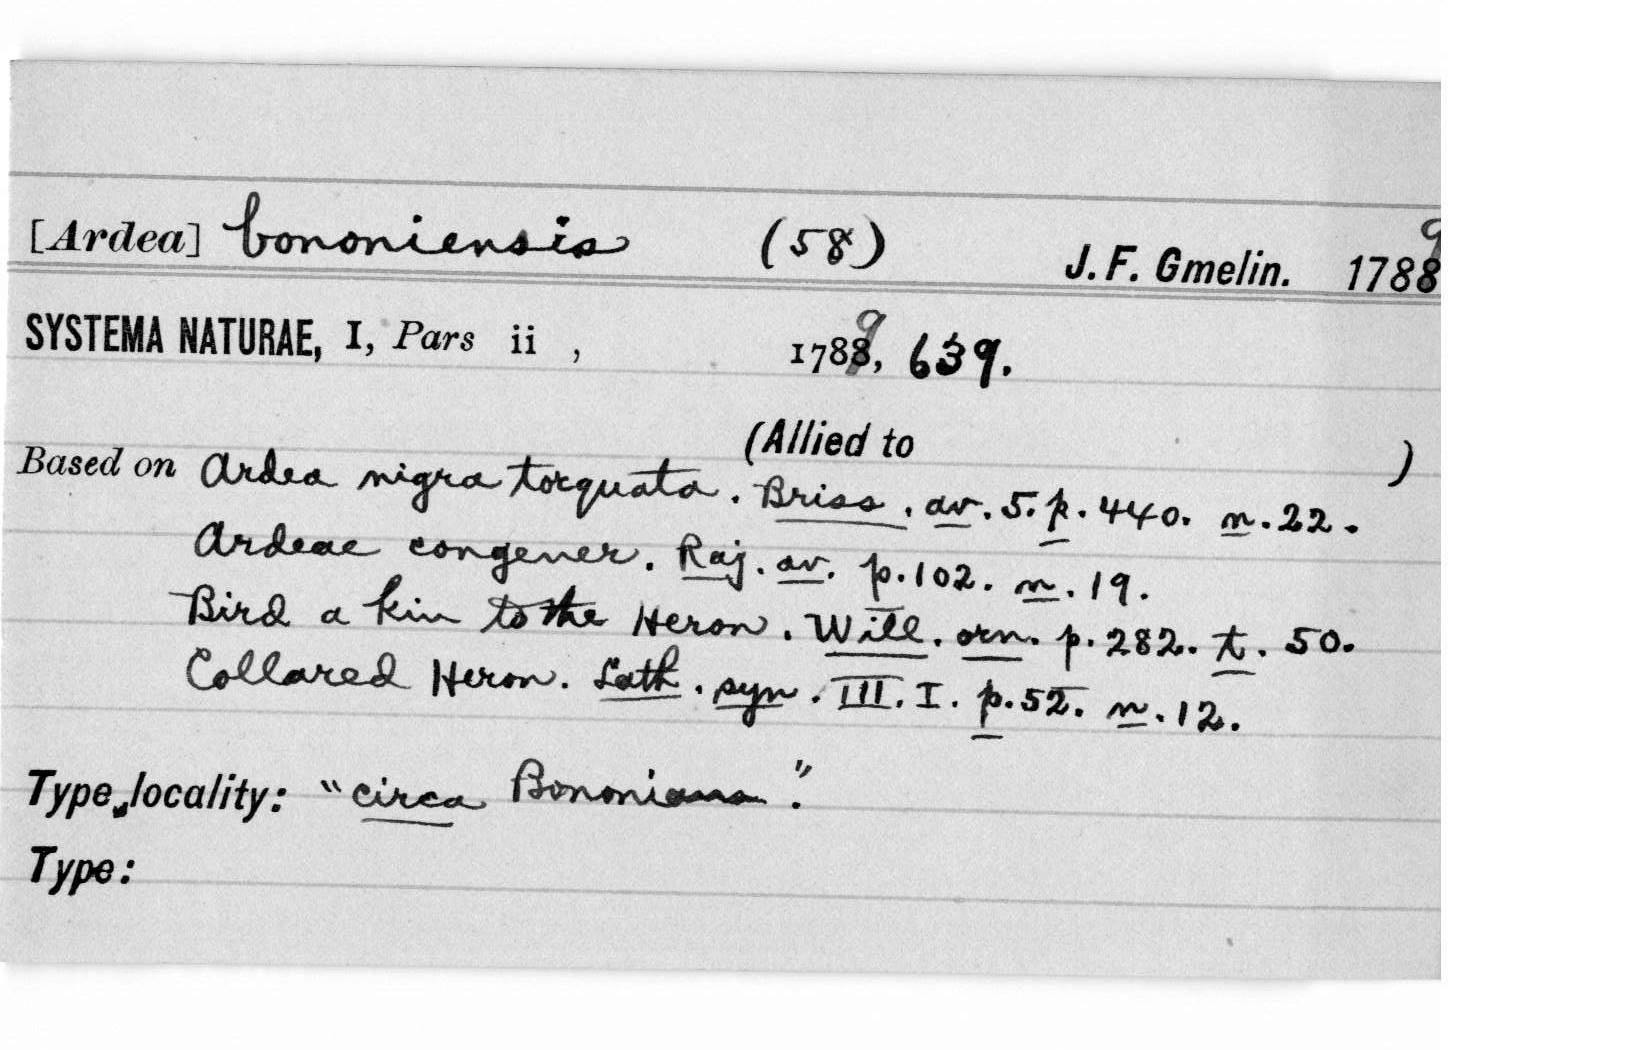 [Ardea] bononiensis (58) J. F. Gmelin. 1789
SYSTEMA NATURAE, I, Pars ii , 1789, 639.
(Allied to )
Based on Ardea nigra torquata. Briss. av. 5. p. 440. n. 22.
Ardeae congener. Raj. av. p. 102. n. 19.
Bird a kin to the Heron. Will. orn. p. 282. t. 50.
Collared Heron. Lath. syn. III. I. p. 52. n. 12.
Type locality: "circa Bononiam".
Type: